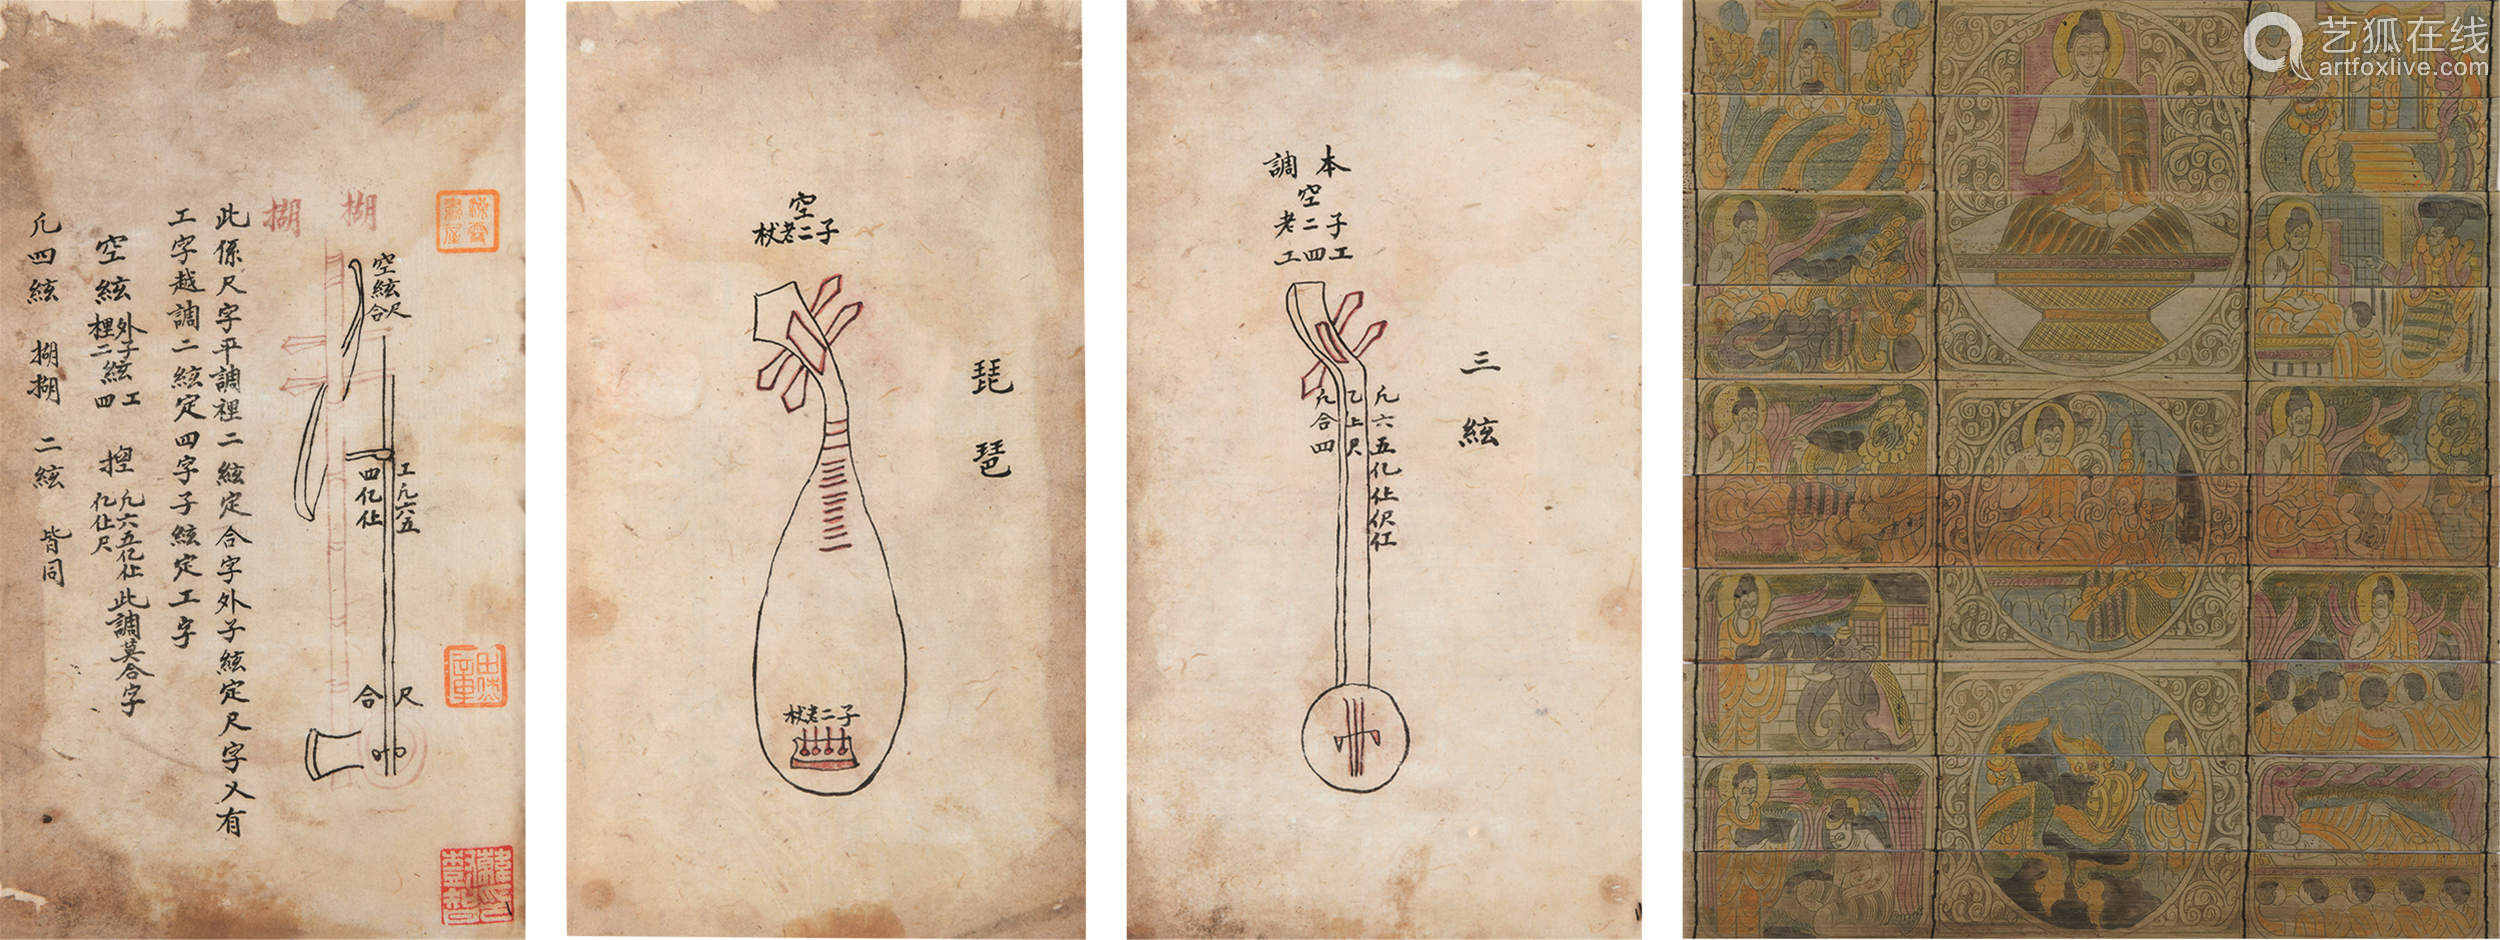 搊 搊
空絃尺
合
工凡六五
四亿仩
尺
合
此係尺字平調裡二絃定合字外子絃定尺字又有
工字越調二絃定四字子絃定工字
空絃外子絃工
裡二絃四
揑凡六五亿仩
亿仩尺
此調莫合字
凡四絃 搊搊 二絃 皆同
琵琶
空
杖老二子
杖老二子
三絃
本調
空
老二子
工四工
凡六五亿仩伬仜
乙上尺
凡合四
艺狐在线
artfoxlive.com